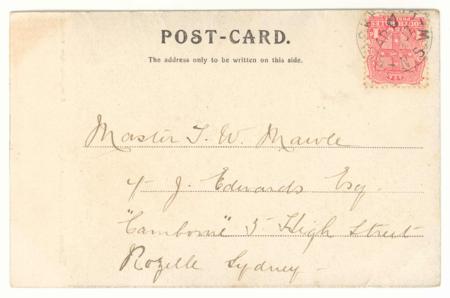 POST-CARD.
The address only to be written on this side.
Master T. W. Mawle
c/- J. Edwards Esq.
"Camborne" 5 High Street
Rozelle Sydney -